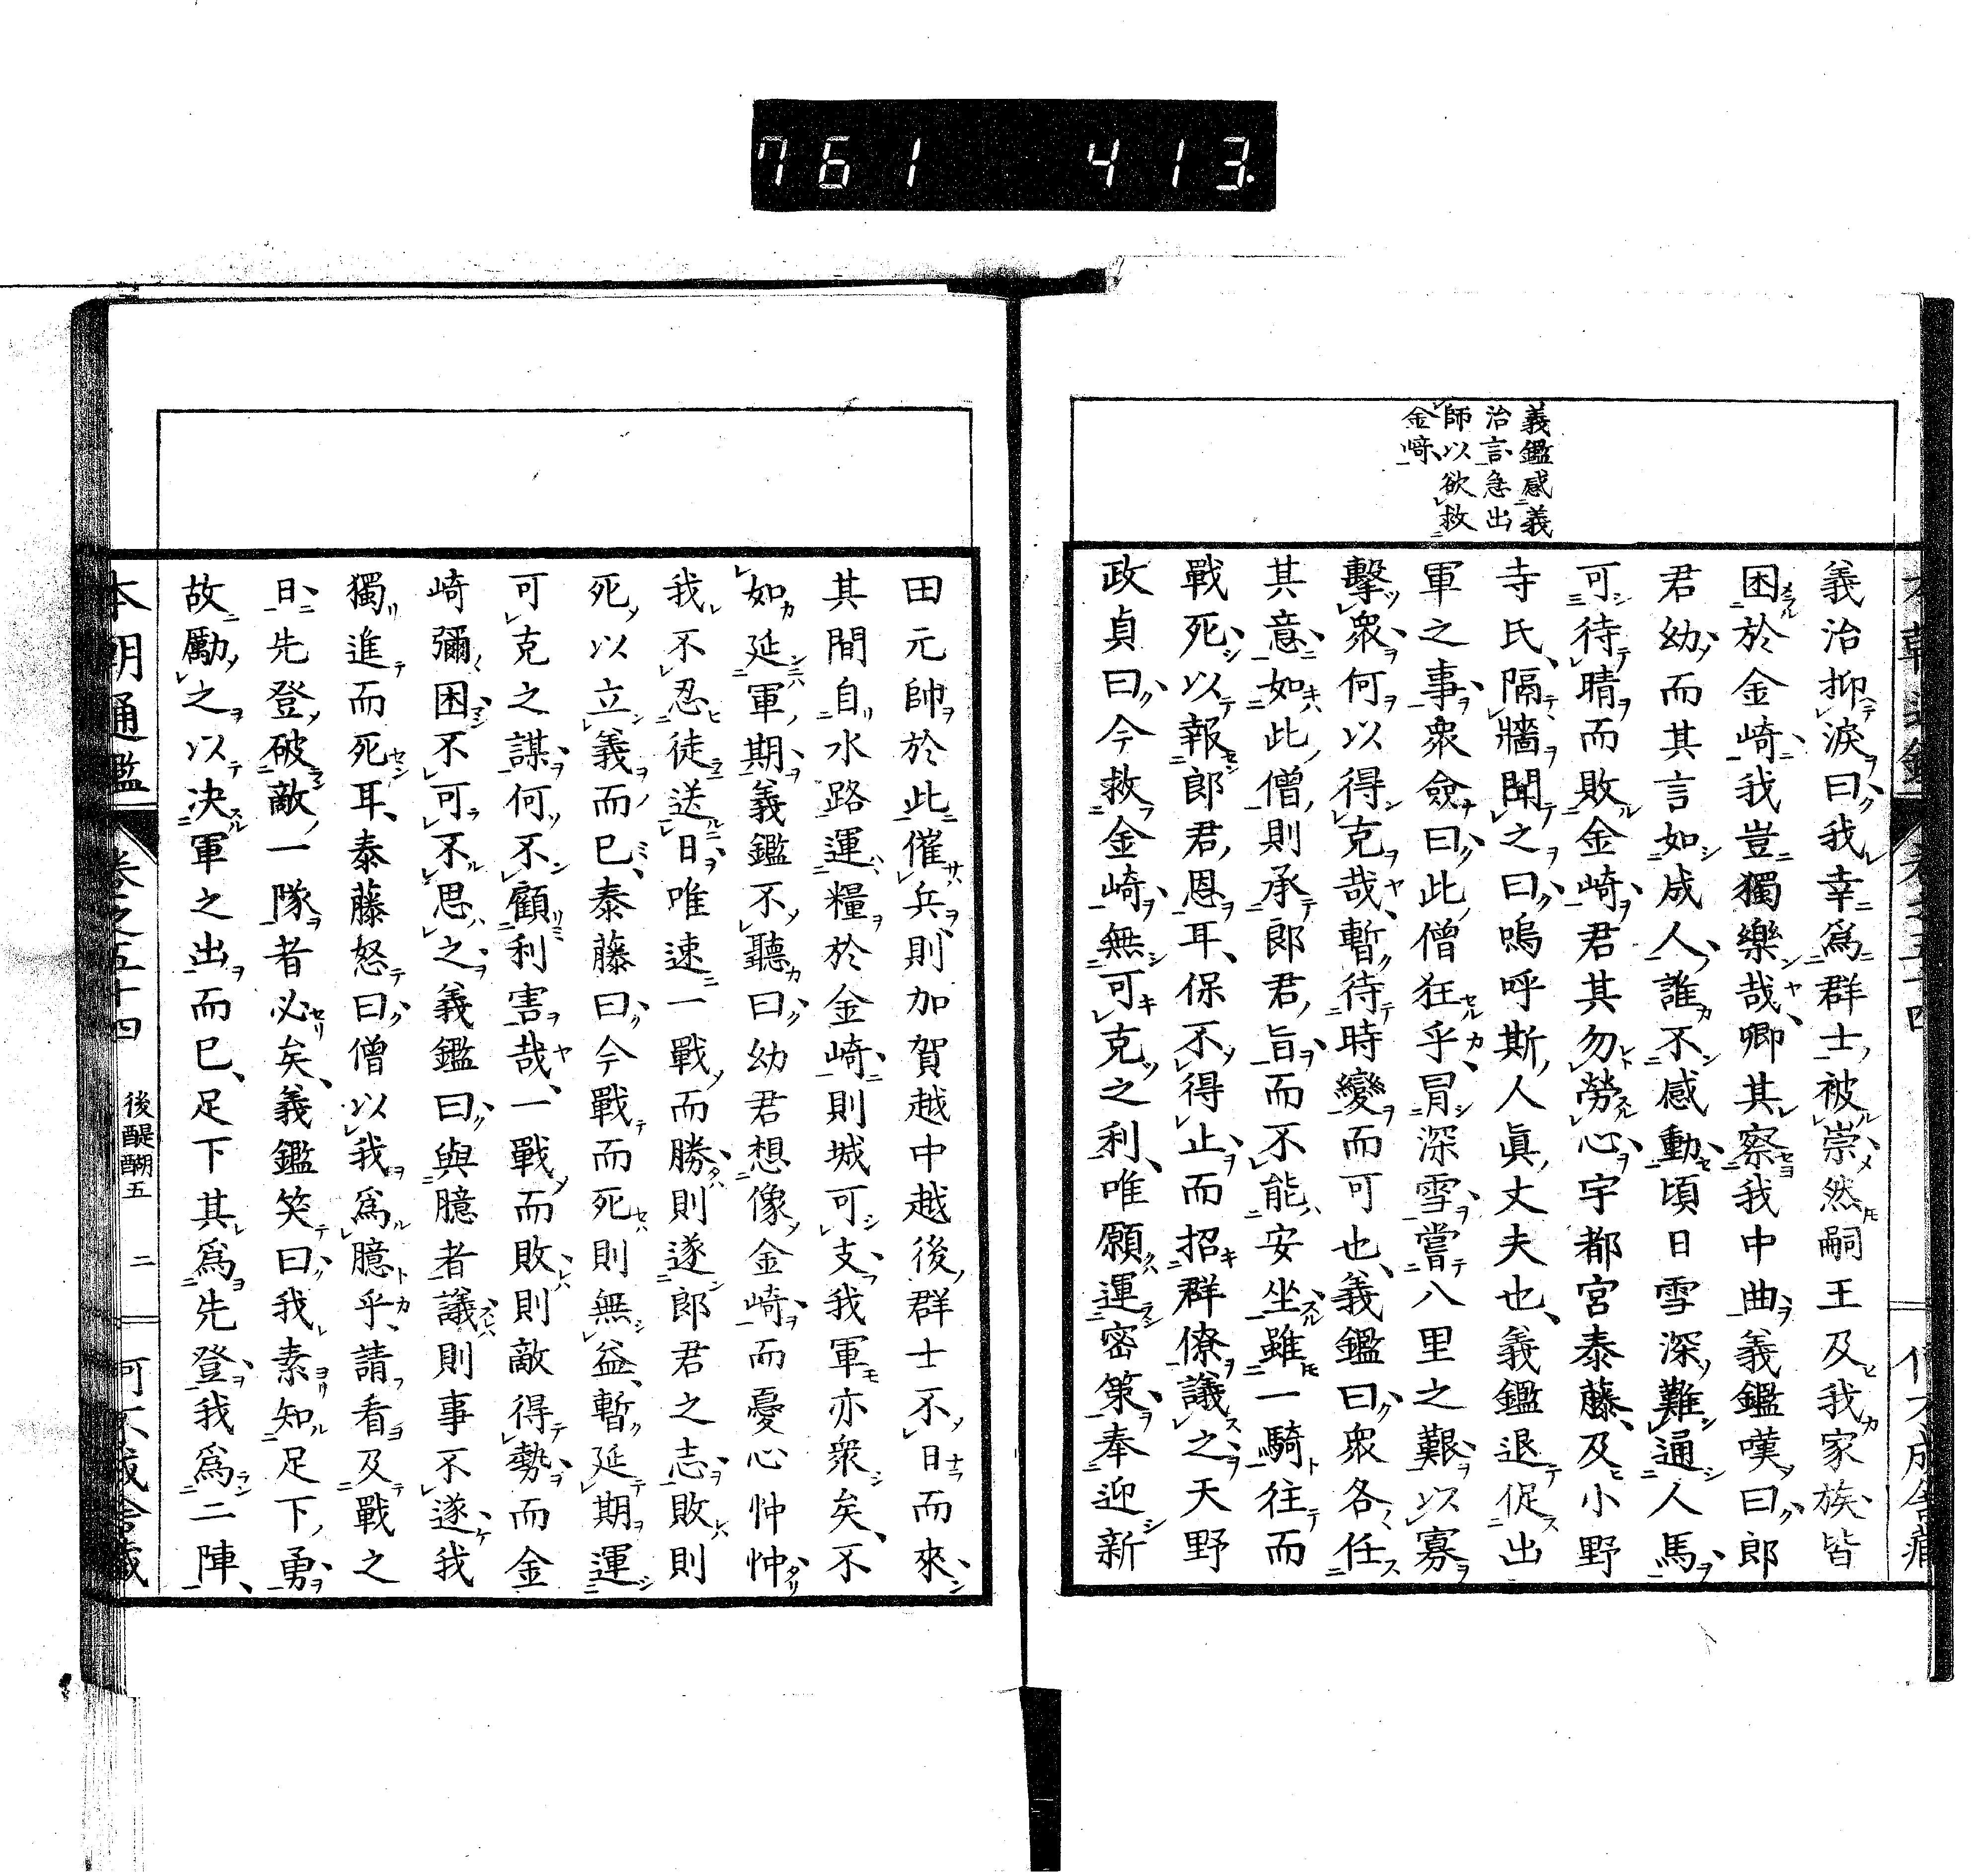 761 413
義鑑感義
治言急出
師以欲救
金﨑
義治抑淚曰我幸爲群士被崇然嗣王及我家族皆
困於金崎我豈獨樂哉卿其察我中曲義鑑嘆曰郎
君幼而其言如成人誰不感動頃日雪深難通人馬
可待晴而敗金崎君其勿勞心宇都宮泰藤及小野
寺氏隔牆聞之曰嗚呼斯人眞丈夫也義鑑退促出
軍之事衆僉曰此僧狂乎冒深雪嘗八里之艱以寡
擊衆何以得克哉暫待時變而可也義鑑曰衆各任
其意如此僧則承郎君旨而不能安坐雖一騎往而
戰死以報郎君恩耳保不得止而招群僚議之天野
政貞曰今救金崎無可克之利唯願運密策奉迎新
田元帥於此催兵則加賀越中越後群士不日而來
其間自水路運糧於金崎則城可支我軍亦衆矣不
如延軍期義鑑不聽曰幼君想像金崎而憂心忡忡
我不忍徒送日唯速一戰而勝則遂郎君之志敗則
死以立義而已泰藤曰今戰而死則無益暫延期運
可克之謀何不顧利害哉一戰而敗則敵得勢而金
崎彌困不可不思之義鑑曰與臆者議則事不遂我
獨進而死耳泰藤怒曰僧以我爲臆乎請看及戰之
日先登破敵一隊者必矣義鑑笑曰我素知足下勇
故勵之以决軍之出而已足下其爲先登我爲二陣
本朝通鑑 卷之五十四 後醍醐五 二